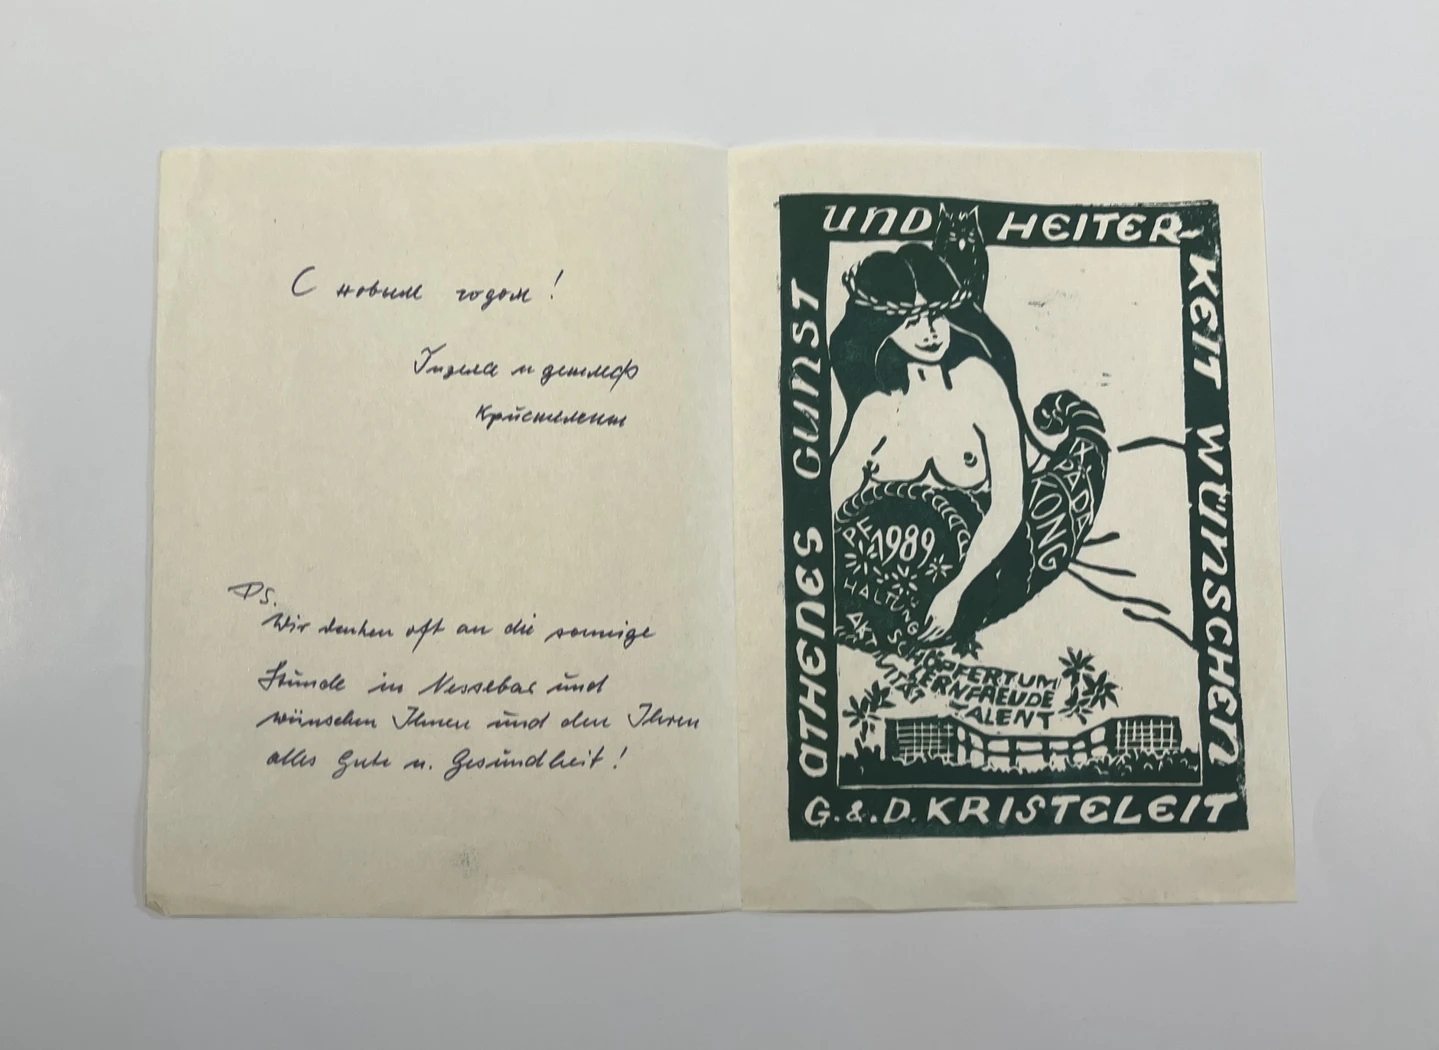 С новым годом!
Гизела и детлеф
Кристелеит
PS.
Wir denken oft an die sonnige
Stunde in Nessebar und
wünschen Ihnen und den Ihren
alles Gute u. Gesundheit!
ATHENES GUNST
UND HEITER-
KEIT WÜNSCHEN
G. & D. KRISTELEIT
PÄDA
KONG
PF
1989
HALTUNG
AKTIVITÄT
SCHÖPFERTUM
LERNFREUDE
TALENT